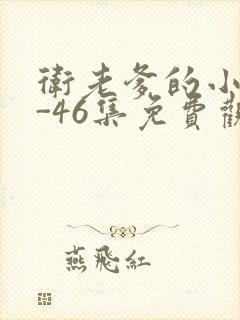 衛老爹的小
-46集免費觀
燕飛紅